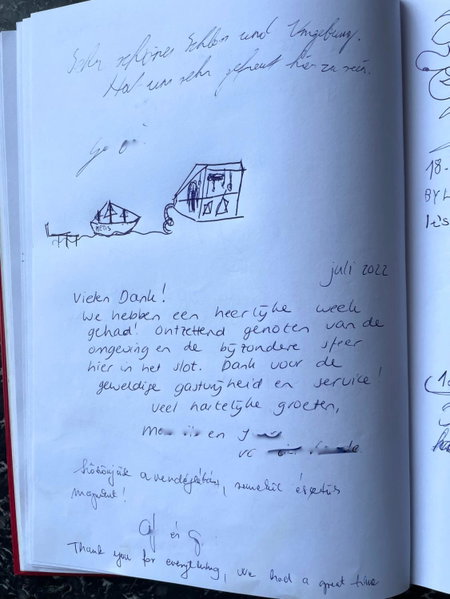 Sehr schönes Schloss und Umgebung.
Hat uns sehr gefreut hier zu sein.
juli 2022
Vielen Dank!
We hebben een heerlijke week
gehad! Ontzettend genoten van de
omgeving en de bijzondere sfeer
hier in het slot. Dank voor de
geweldige gastvrijheid en service!
Veel hartelijke groeten,
en
Köszönjük a vendéglátást,
magunkat!
és
Thank you for everything, We had a great time
18.